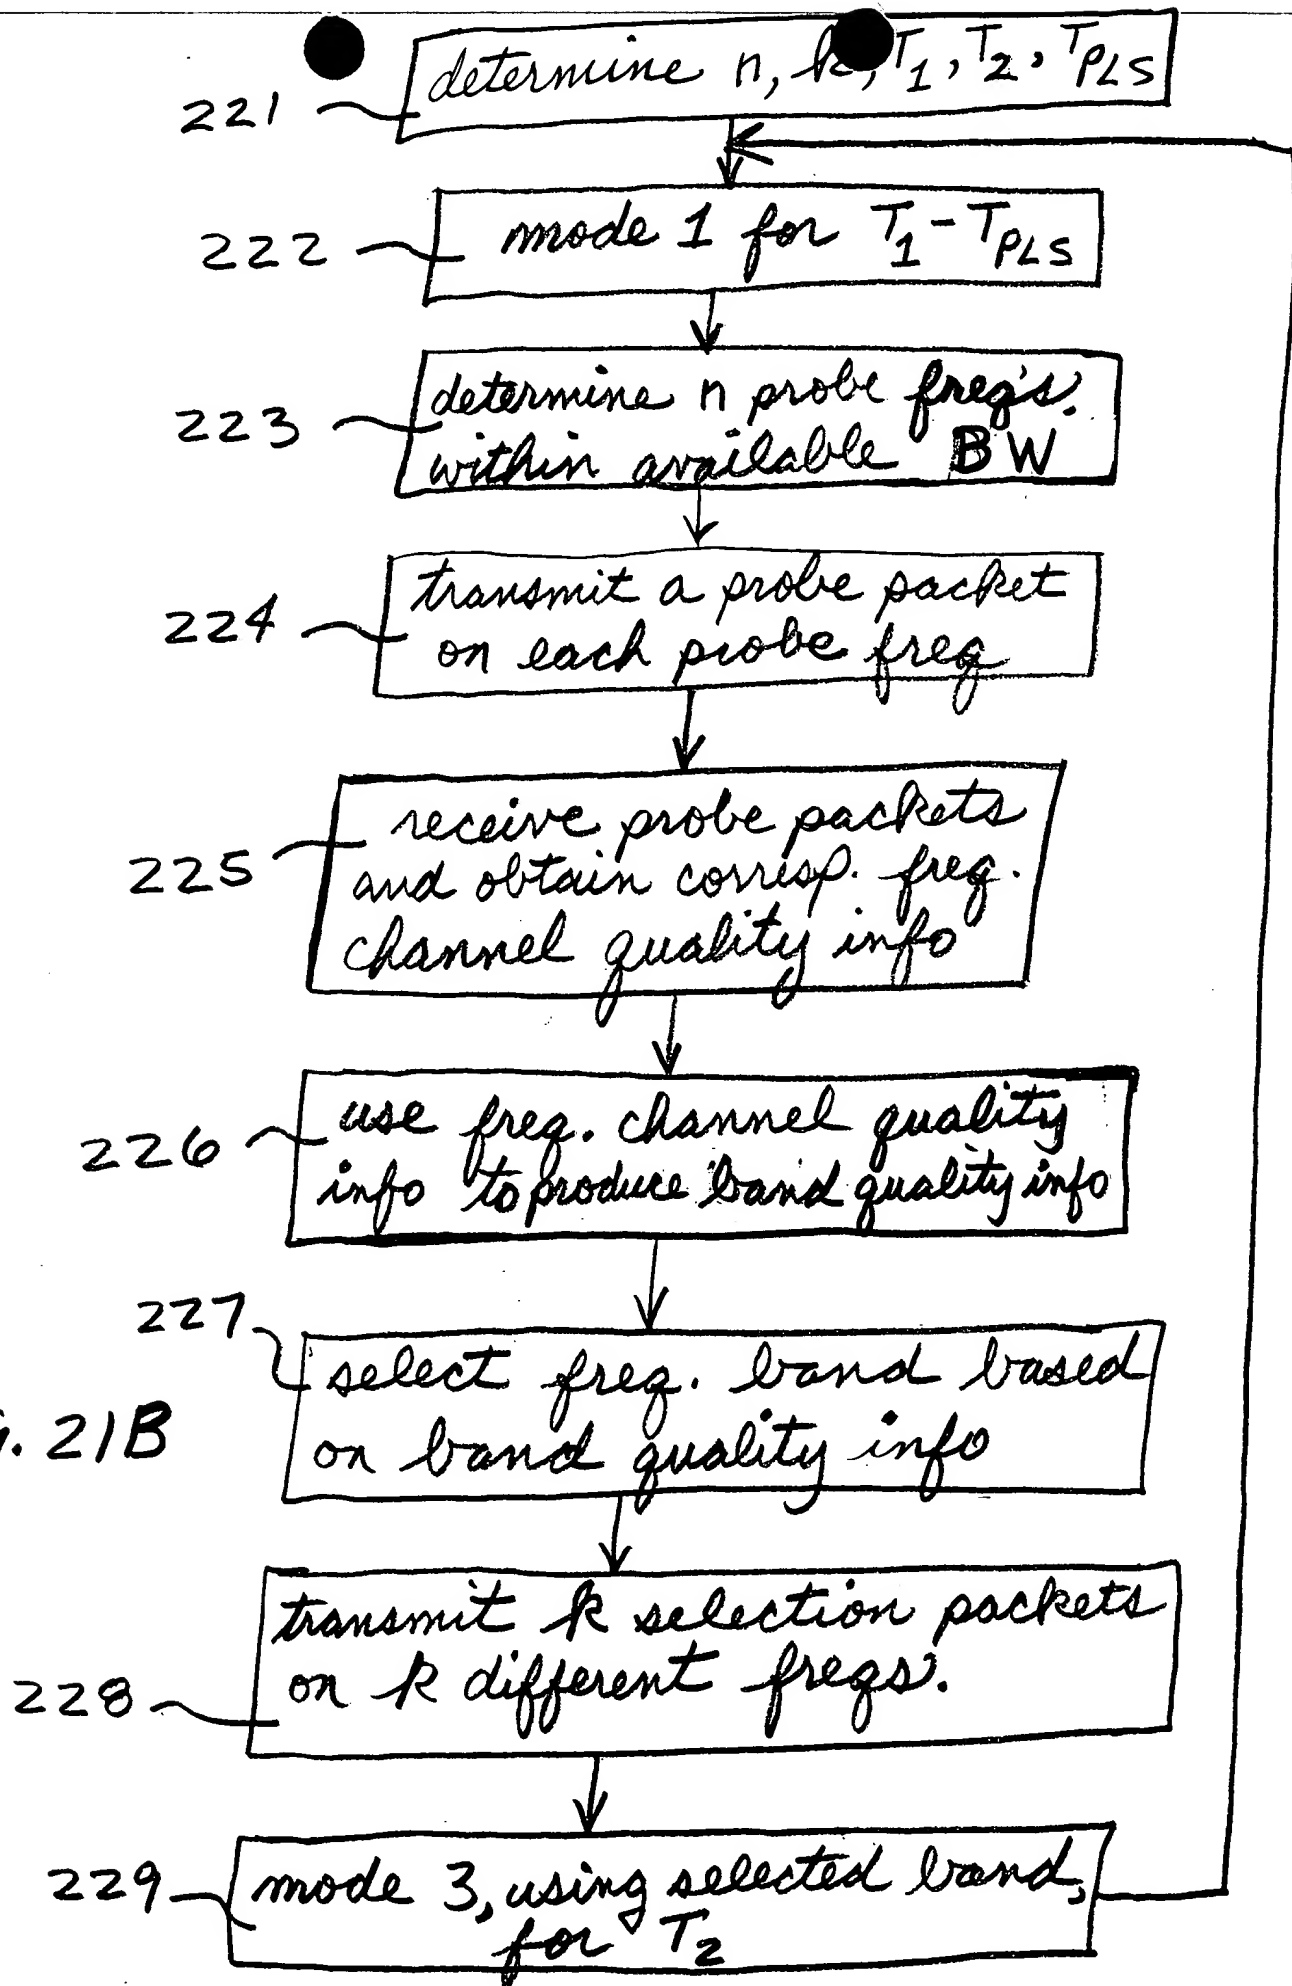 221
determine n, k, T1, T2, TPLS
222
mode 1 for T1 - TPLS
223
determine n probe freq's.
within available BW
224
transmit a probe packet
on each probe freq
225
receive probe packets
and obtain corresp. freq.
channel quality info
226
use freq. channel quality
info to produce band quality info
227
select freq. band based
on band quality info
. 21B
transmit k selection packets
on k different freqs'.
228
229
mode 3, using selected band,
for T2